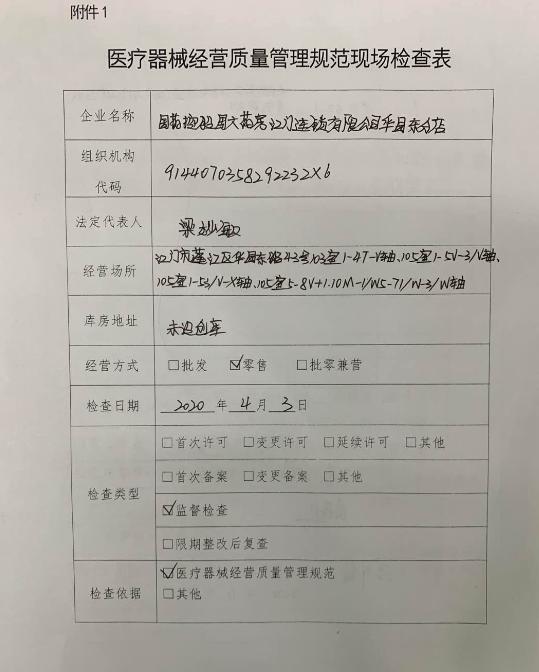 附件1
医疗器械经营质量管理规范现场检查表
企业名称 国药控股国大药房江门连锁有限公司华园东分店
组织机构
代码
9144070358292232X6
法定代表人 梁
经营场所
江门市蓬江区华园东路43号103室1-4T-V轴、105室1-5V-3/V轴、
105室1-53/V-X轴、105室5-8V+1.10M-1/W5-71/W-3/W轴
库房地址 未设仓库
经营方式 □批发 ☑零售 □批零兼营
检查日期 2020年4月3日
检查类型
□首次许可 □变更许可 □延续许可 □其他
□首次备案 □变更备案 □其他
☑监督检查
□限期整改后复查
检查依据
☑医疗器械经营质量管理规范
□其他